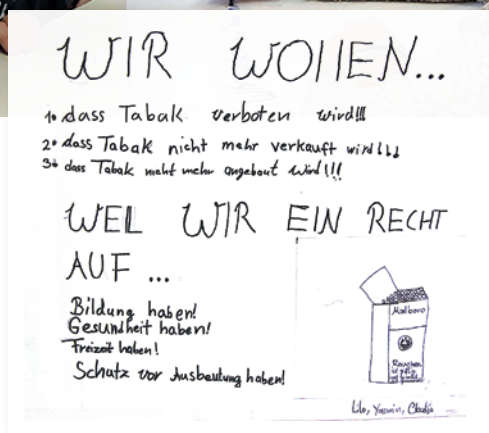 WIR WOllEN...
1. dass Tabak verboten wird!!!
2. dass Tabak nicht mehr verkauft wird!!!
3. dass Tabak nicht mehr angebaut wird!!!
WEL WIR EIN RECHT
AUF ...
Bildung haben!
Gesundheit haben!
Freizeit haben!
Schutz vor Ausbeutung haben!
Malboro
Rauchen
Lilo, Yasmin, Claudia